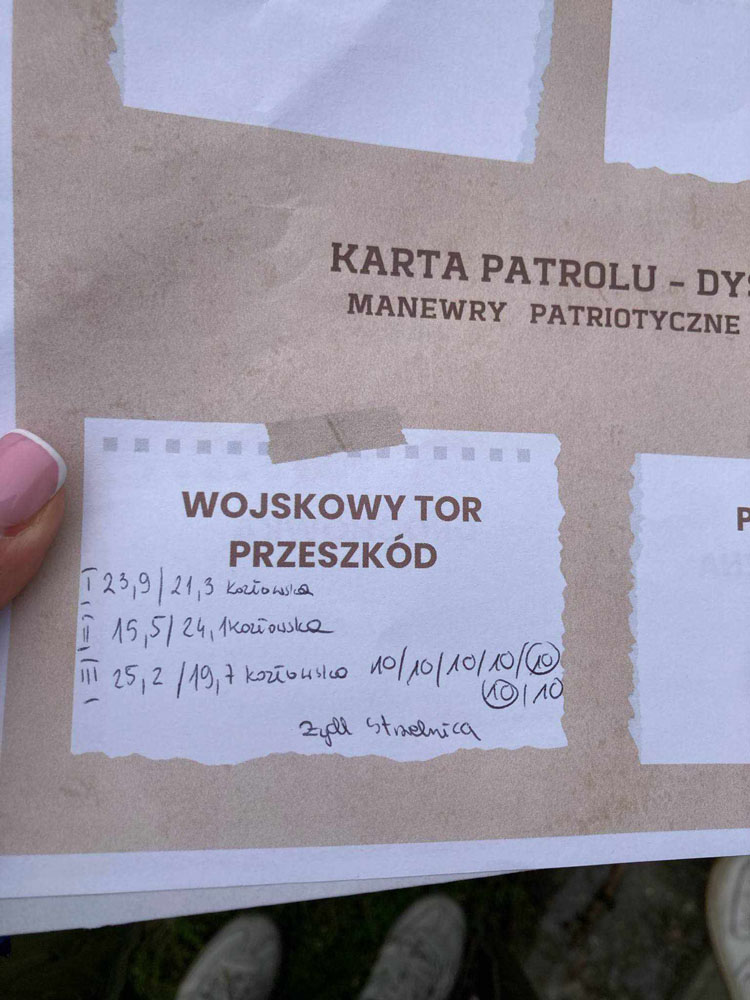 KARTA PATROLU - DYS
MANEWRY PATRIOTYCZNE
WOJSKOWY TOR
PRZESZKÓD
I 23,9/21,3 Kozłowska
II 15,5/24,1 Kozłowska
III 25,2/19,7 Kozłowska 10/10/10/10/10
10/10
Strzelnica
P